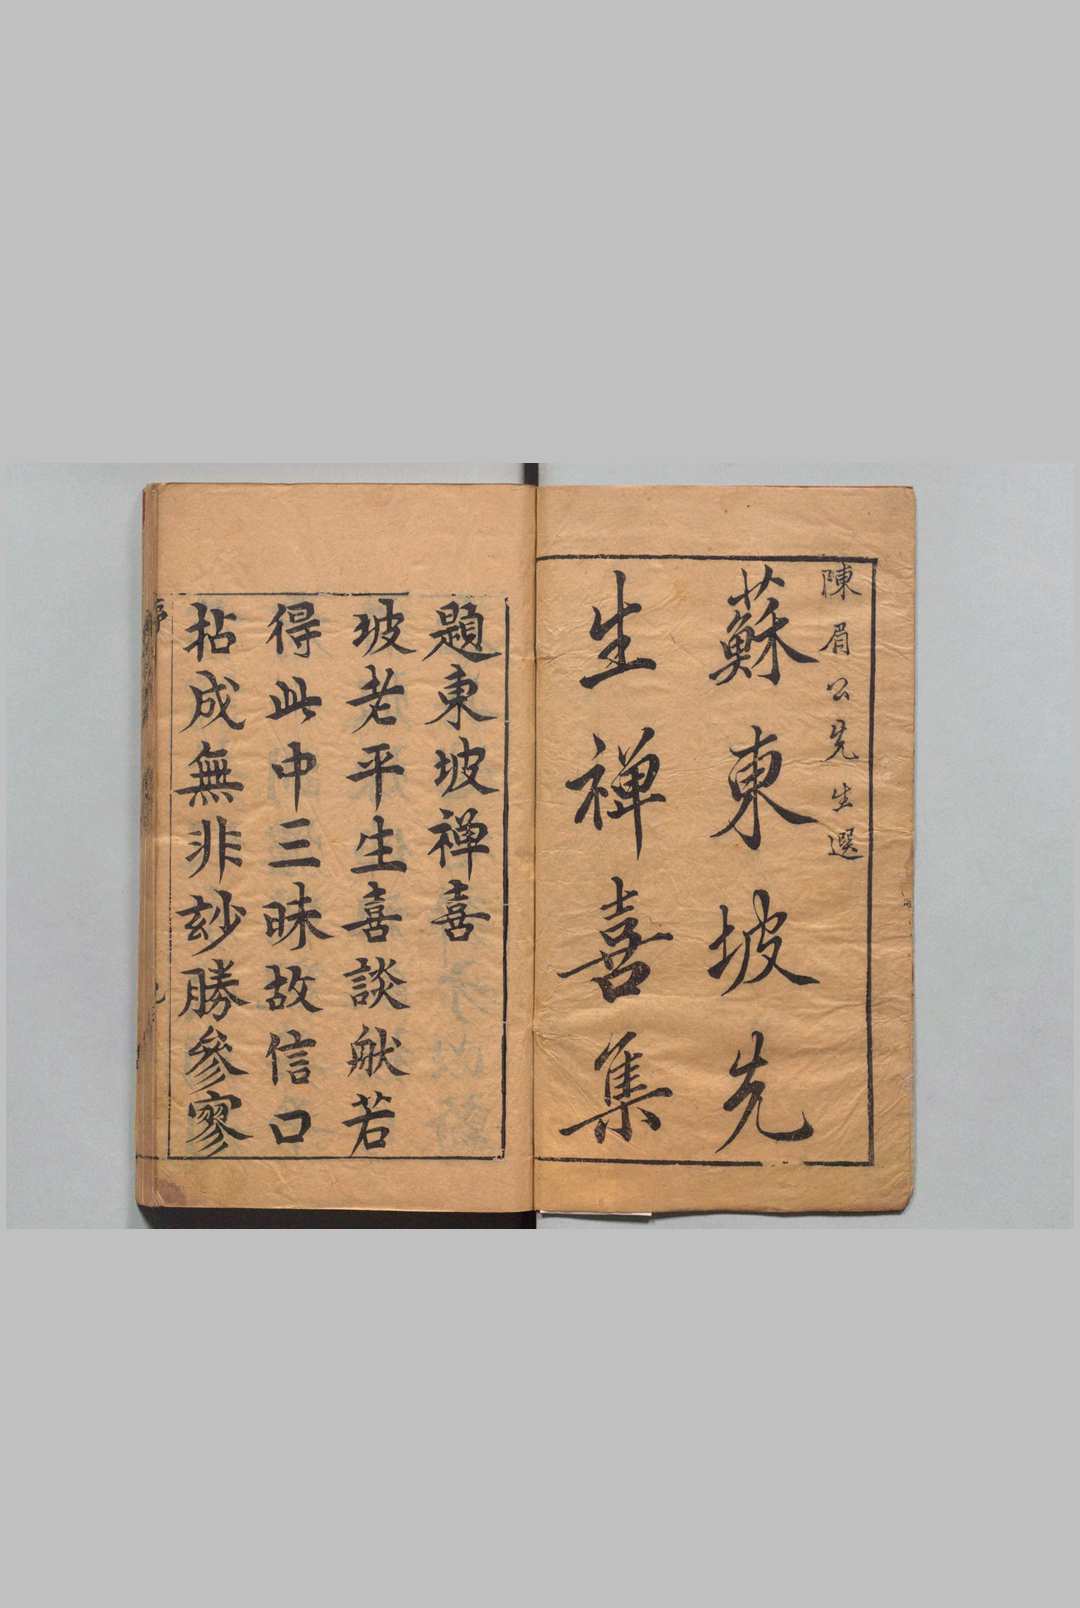 陳眉公先生選
蘇東坡先
生禅喜集
題東坡禅喜
坡老平生喜談猷若
得此中三昧故信口
拈成無非玅勝參寥
序